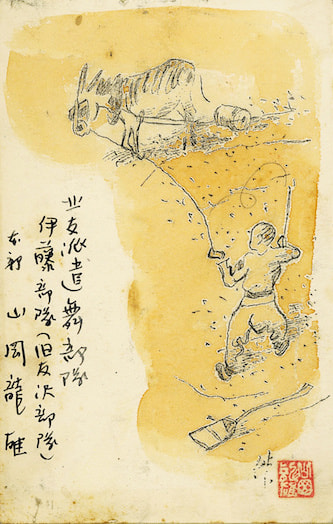 北支派遣舞部隊
伊藤部隊(旧友沢部隊)
本部 山岡龍雄